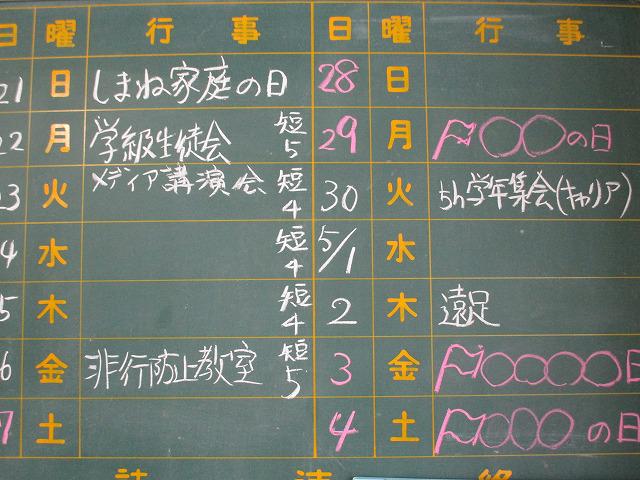 日 曜 行事 日 曜 行事
21 日 しまね家庭の日 28 日
22 月 学級生徒会 短5 29 月 〇〇の日
23 火 メディア講演会 短4 30 火 5h学年集会(キャリア)
4 水 短4 5/1 水
5 木 短4 2 木 遠足
6 金 非行防止教室 短5 3 金 〇〇〇〇日
7 土 4 土 〇〇〇の日